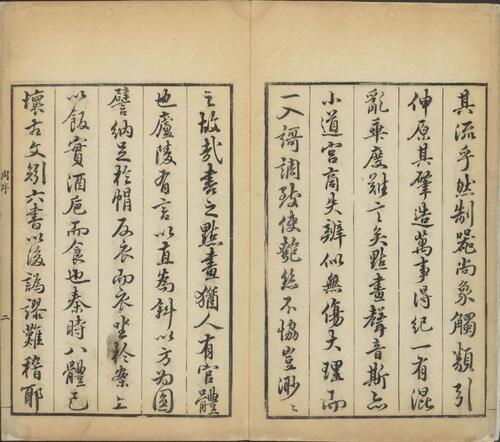 其流乎然制器尚象觸類引
伸原其肇造萬事得紀一有混
亂乘度難言矣點畫聲音斯亦
小道宮商失辨似無傷大理而
一入謌調致使乾絲不協豈渺々
之故哉書之點畫猶人有官體
也廬陵有言以直為斜以方為圓
譬納足於帽反衣而衣坐於案上
以飯實酒卮而食也秦時八體已
壞古文矧六書以後譌謬難稽耶
周序
二